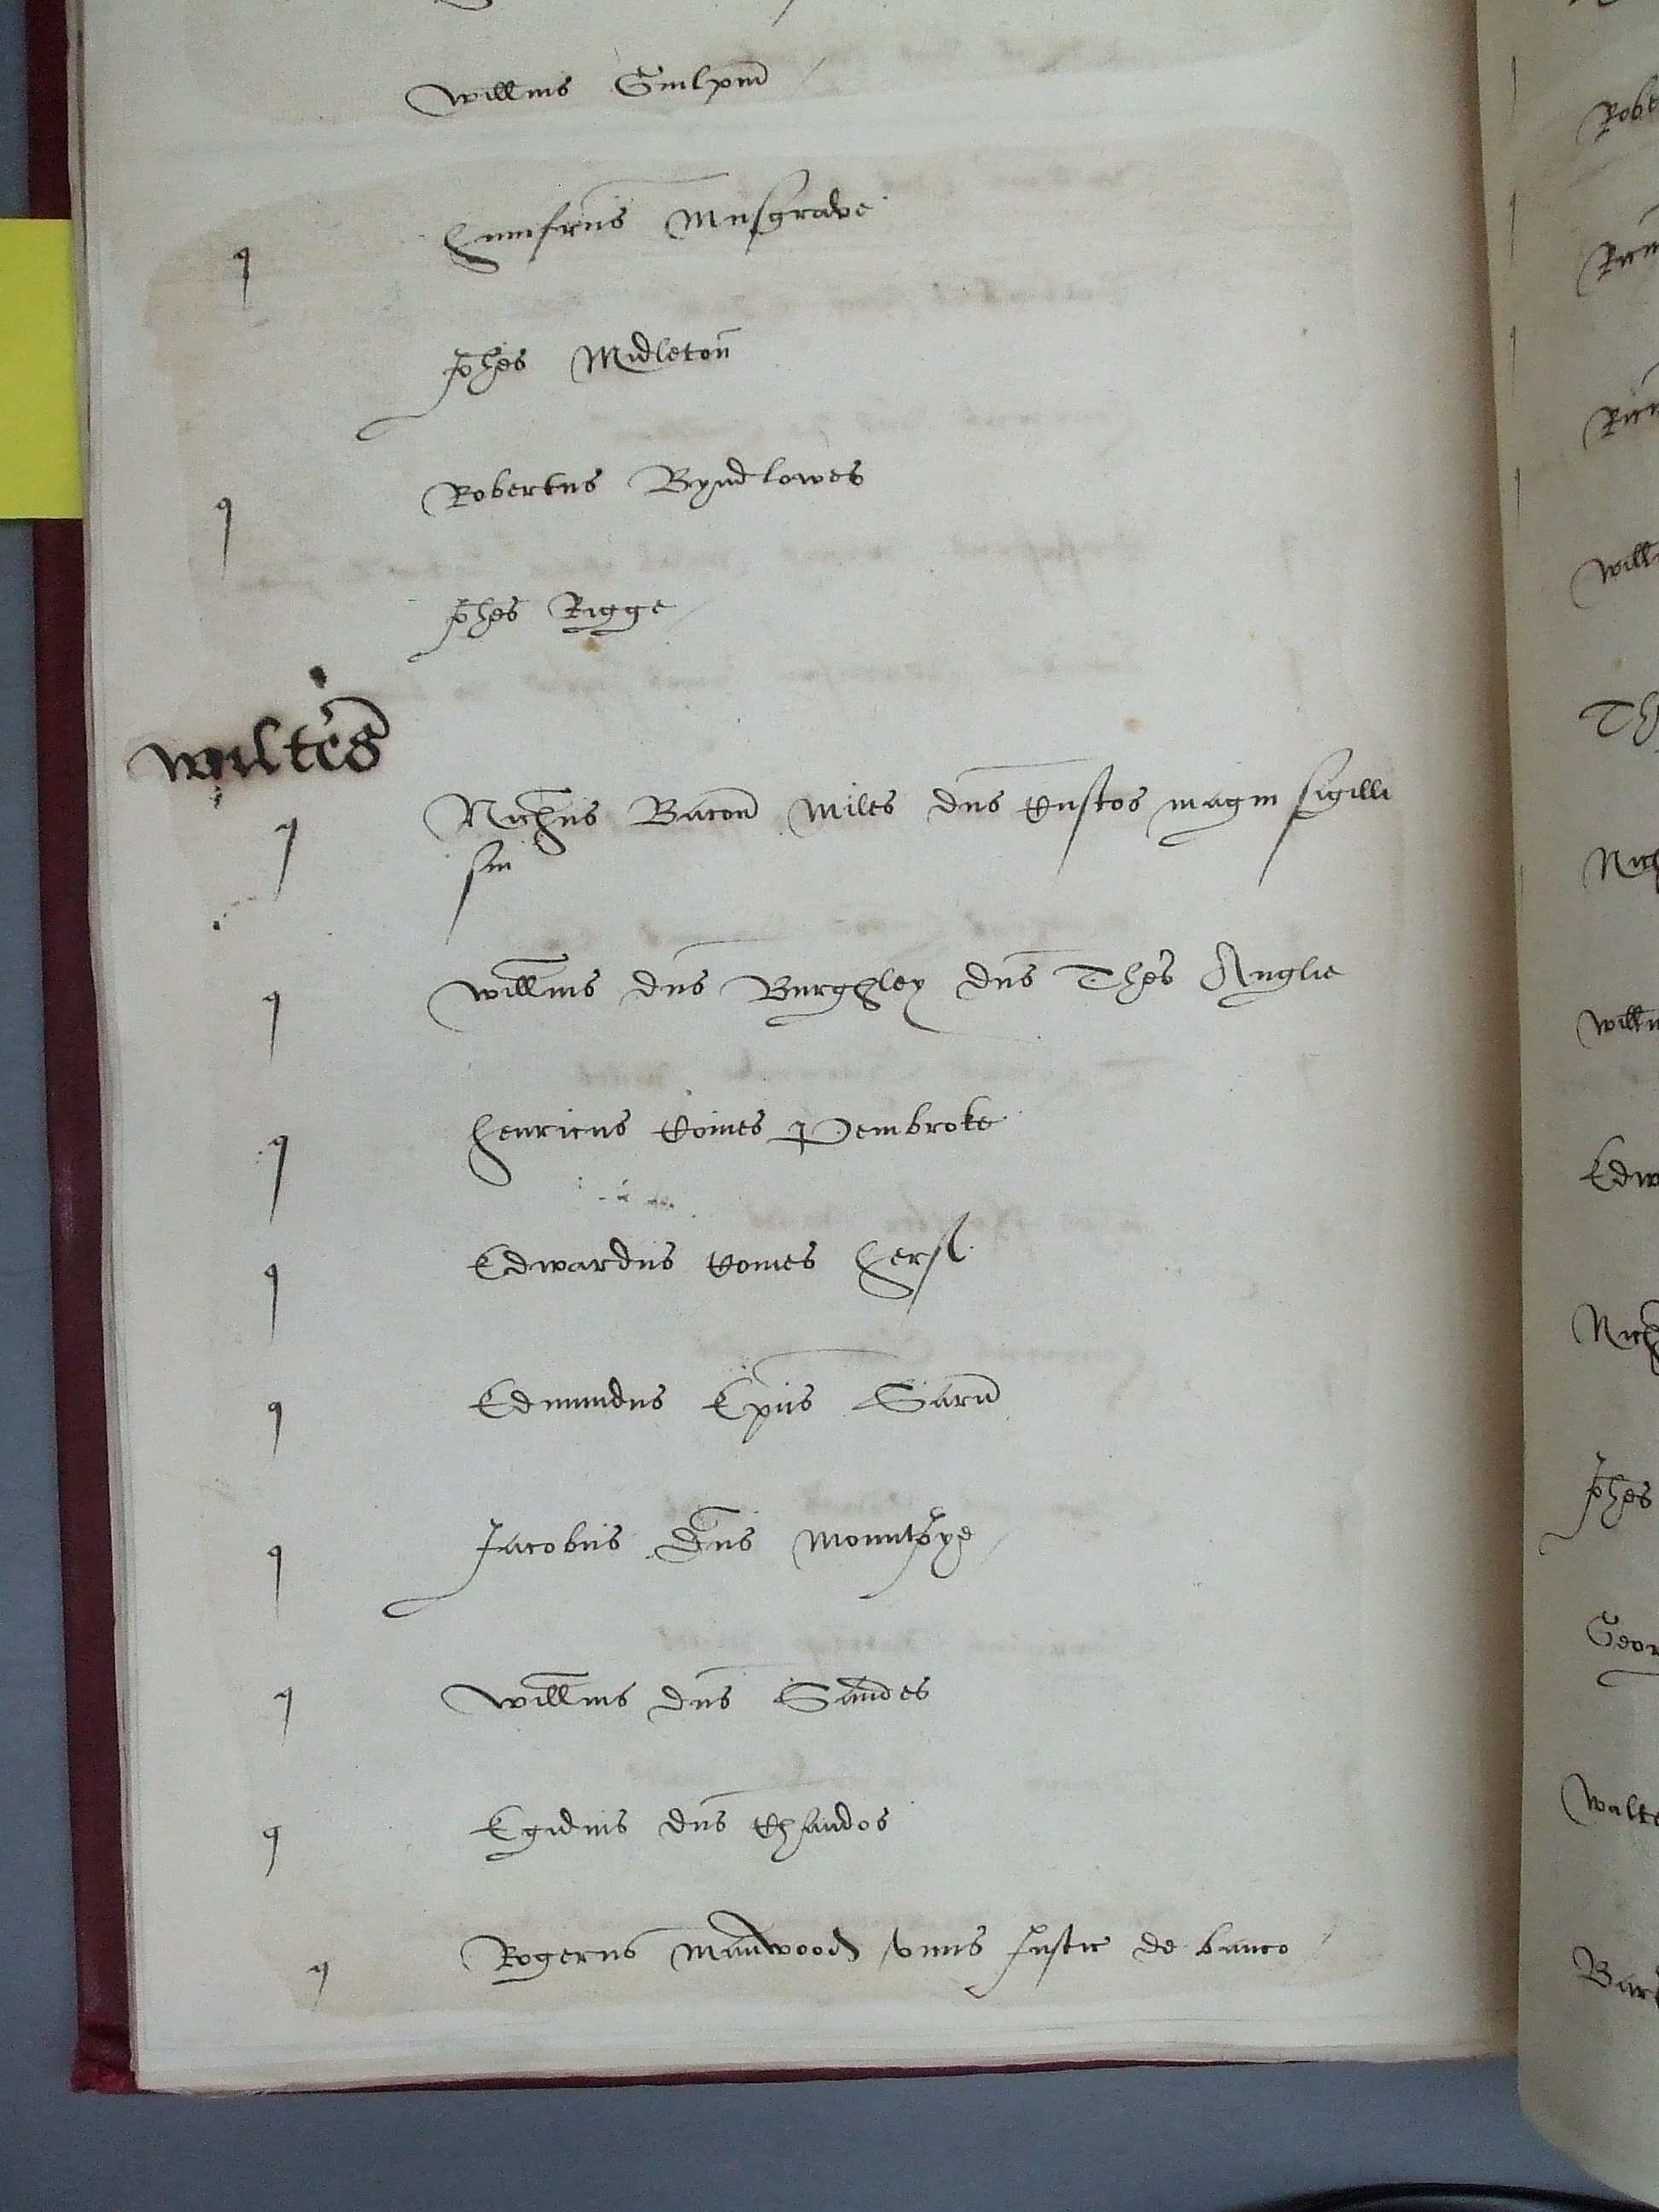 Willms Gilpin
q Humfrus Musgrave
Johes Midleton
q Robertus Byndlowes
Johes Rigge
Wiltes
q Nichus Bacon miles dns Custos magni sigilli
sui
q Willms dns Burghley dns Thes Anglie
q Henricus Comes Pembroke
q Edwardus Comes Hertf
q Edmundus Epus Sarum
q Jacobus dns Mountjoye
q Willms dns Sandes
q Egidius dns Chandos
q Rogerus Manwood unus Justic de banco
Robe
Will
Th
Nich
Willm
Edw
Nich
Johes
Geor
Walte
Bar